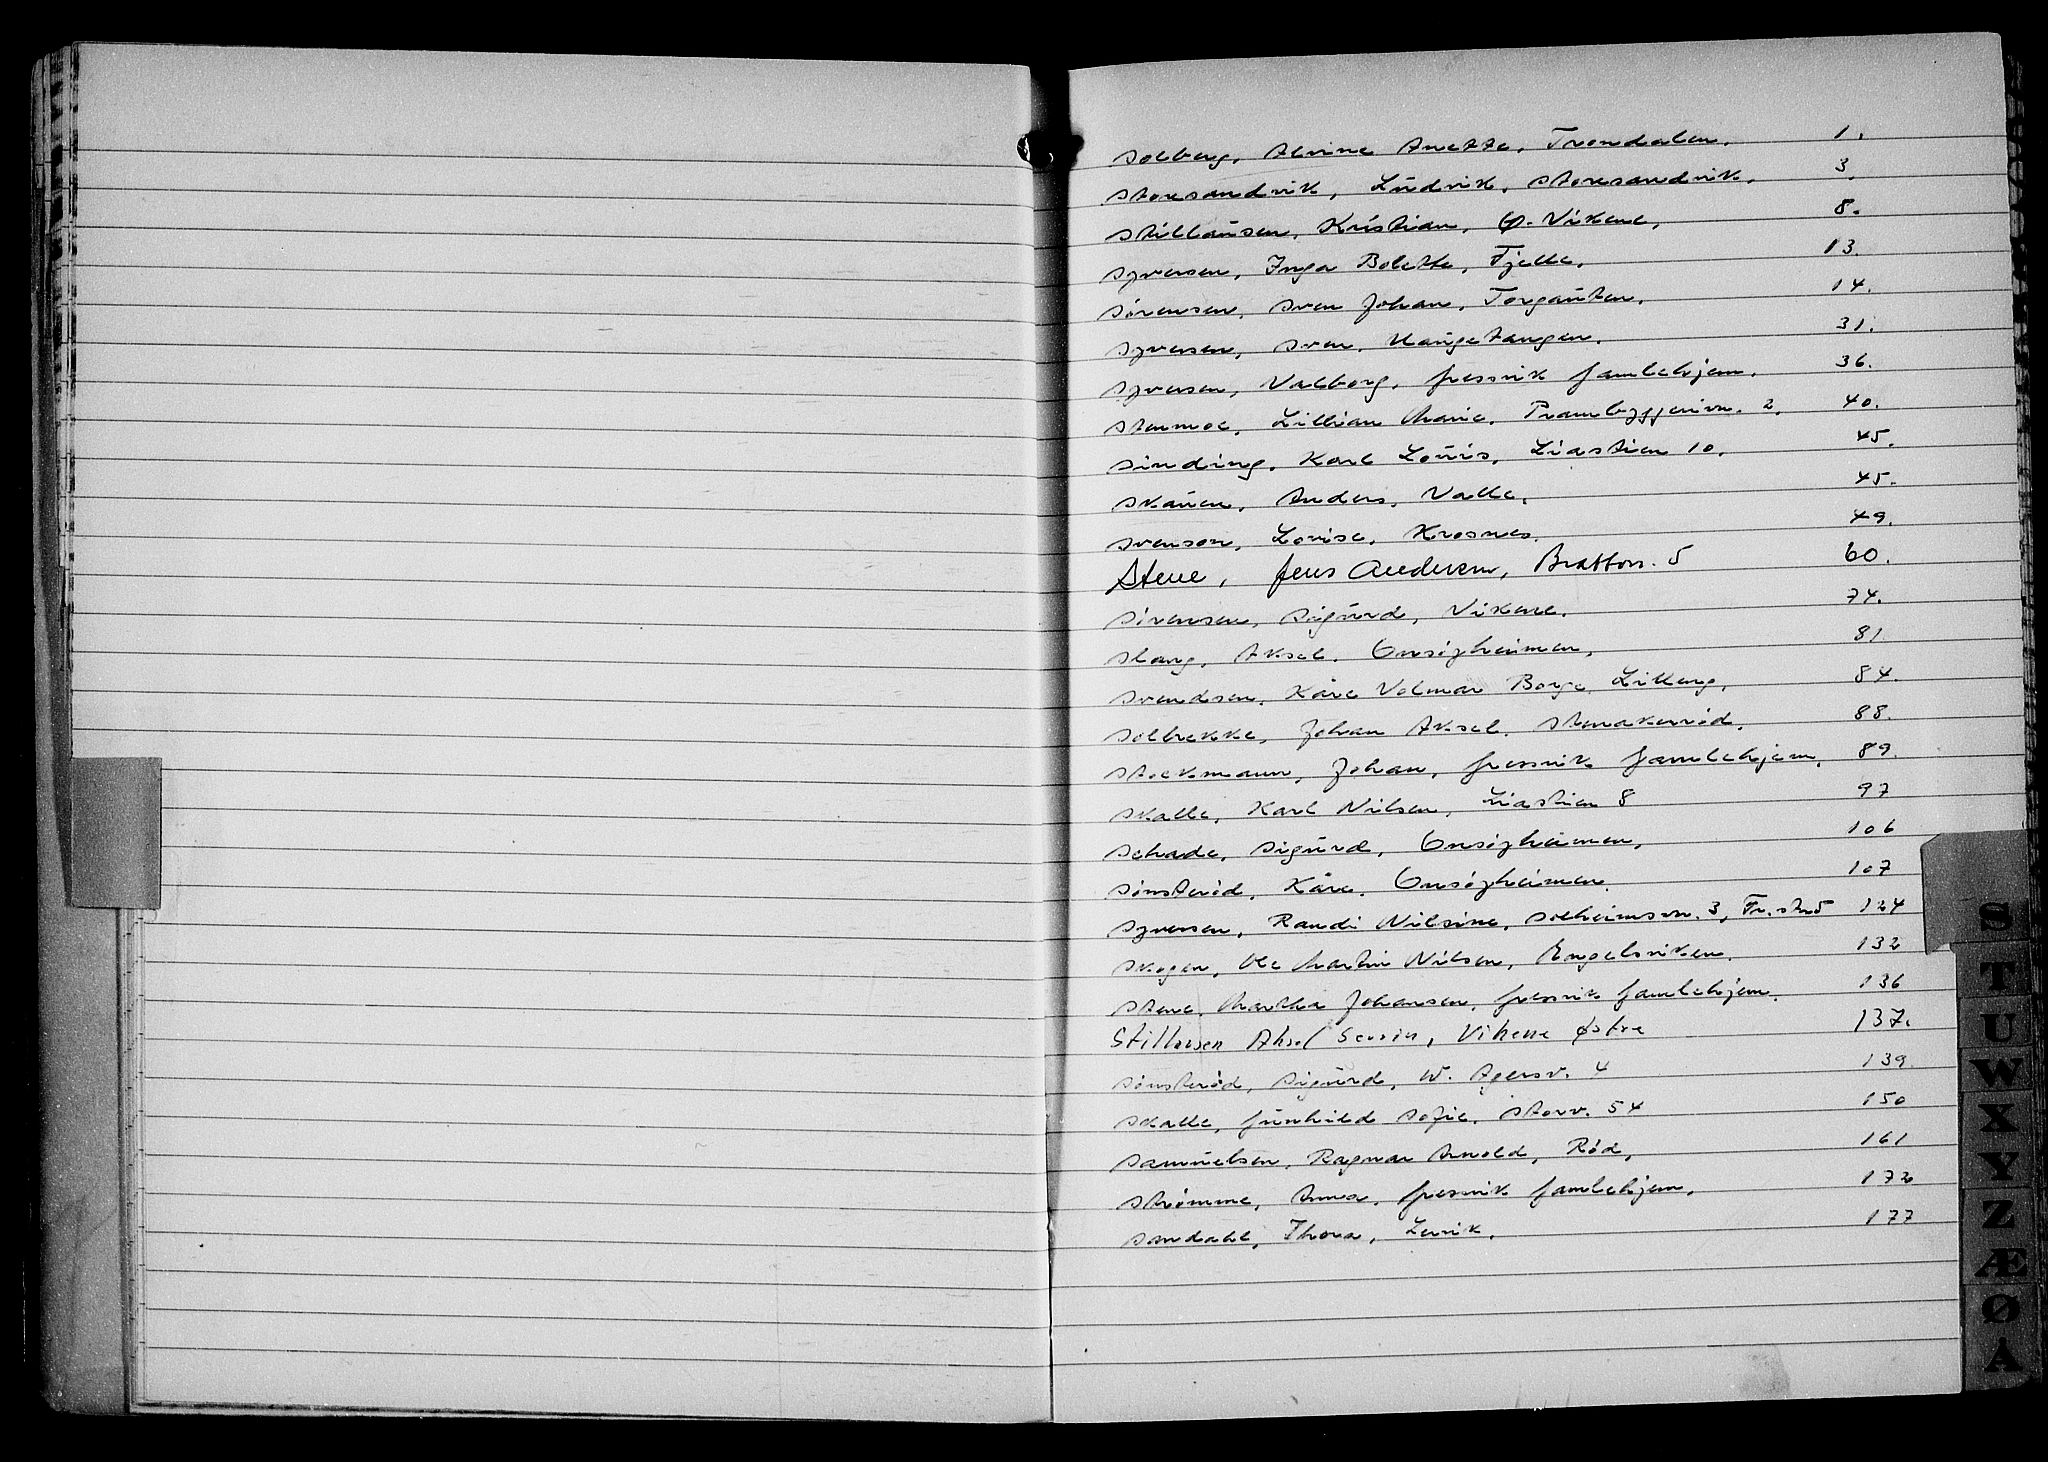 Solberg, Alvine Anette, Trondalen. 1.
Storesandvik, Ludvik, Storesandvik. 3.
Stillausen, Kristian, Ø. Vikene, 8.
Syversen, Inga Bolette, Fjelle. 13.
Sørensen, Sven Johan, Torgauten. 14.
Syversen, Sven, Haugetangen. 31.
Syversen, Valborg, Gressvik Gamlehjem. 36.
Stenmoe, Lillian Marie, Prambyggerivn. 2. 40.
Sinding, Karl Louis, Liastien 10. 45.
Skauen, Anders, Valle. 45.
Svenson, Lovise, Krosnes. 49.
Stene, Jens Andersen, Brattov. 5 60.
Sørensen, Sigurd, Vikene. 74.
Slang, Aksel, Onsøyheimen. 81
Svendsen, Kåre Volmar Borge, Lilleng. 84.
Solbrekke, Johan Aksel, Stenakerød. 88.
Stockmann, Johan, Gressvik Gamlehjem, 89.
Skalle, Karl Nilsen, Liastien 8 97
Schade, Sigurd, Onsøyheimen, 106
Sønsterød, Kåre, Onsøyheimen. 107
Syversen, Randi Nilsine, Solheimsvn. 3, Fr.stad 124
Skogen, Ole Martin Nilsen, Engelsviken. 132
Stene, Martha Johansen, Gressvik Gamlehjem. 136
Stillausen Aksel Severin, Vikene Østre 137.
Sønsterød, Sigurd, W. Agersv. 4 139.
Skalle, Gunhild Sofie, Storv. 54 150
Samuelsen, Ragnar Arnold, Rød, 161
Strømme, Anna, Gressvik Gamlehjem. 172
Sandahl, Thora, Lervik. 177
S
T
U
W
X
Y
Z
Æ
Ø
Å